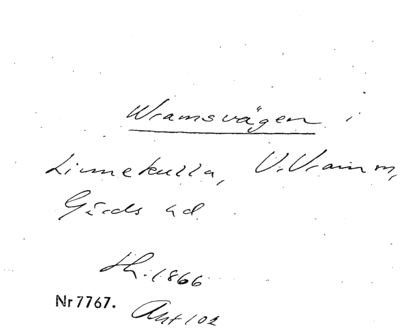 Wramsvägen i
Linnekulla, V. Vram m,
Gärds hd.
th. 1866
Nr 7767. Akt 102